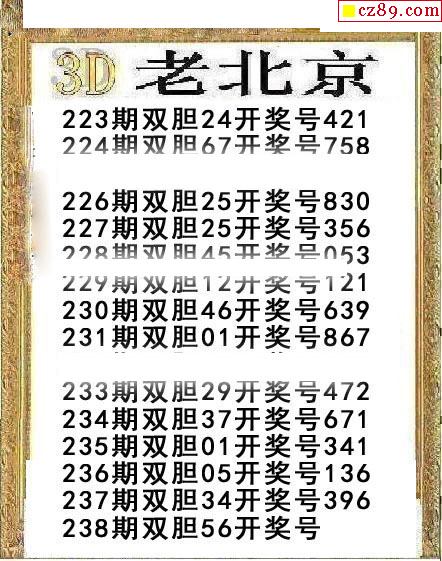 cz89.com
3D 老北京
223期双胆24开奖号421
224期双胆67开奖号758
226期双胆25开奖号830
227期双胆25开奖号356
228期双胆45开奖号053
229期双胆12开奖号121
230期双胆46开奖号639
231期双胆01开奖号867
233期双胆29开奖号472
234期双胆37开奖号671
235期双胆01开奖号341
236期双胆05开奖号136
237期双胆34开奖号396
238期双胆56开奖号